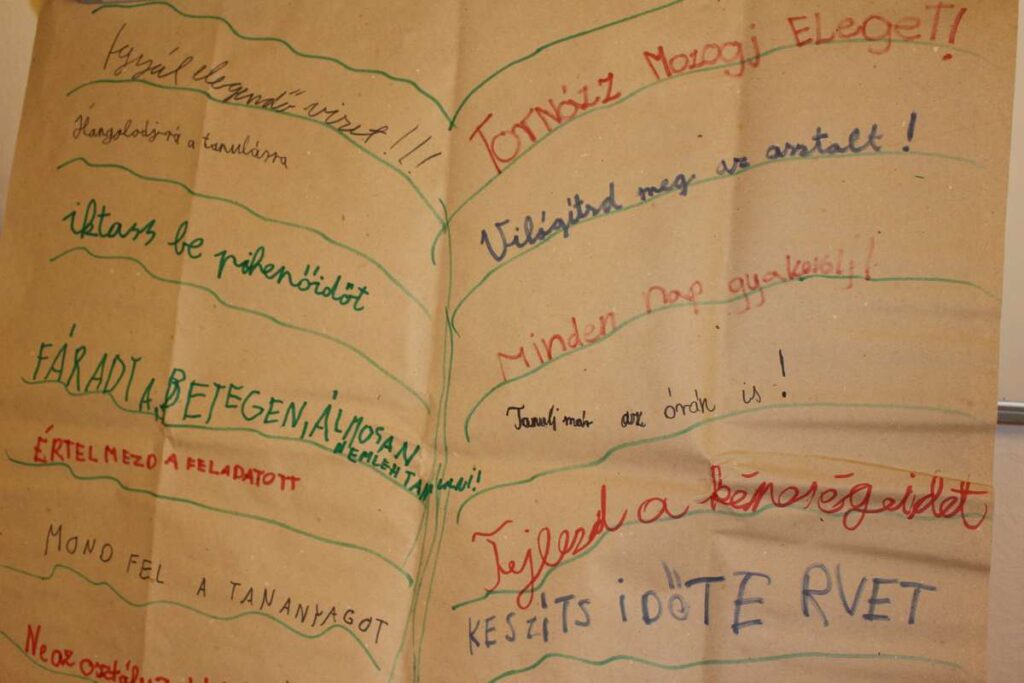 Igyál elegendő vizet!!!
Hangolódj rá a tanulásra
iktass be pihenőidőt
FÁRADTA, BETEGEN, ÁLMOSAN
NEM LEHET TANULNI!
ÉRTELMEZD A FELADATOTT
MOND FEL A TANANYAGOT
Ne az
TORNÁZZ MOZOGJ ELEGET!
Világítsd meg az asztalt!
Minden nap gyakorolj!
Tanulj már az órán is!
Fejleszd a képességeidet
KESZÍTS IDŐTERVET